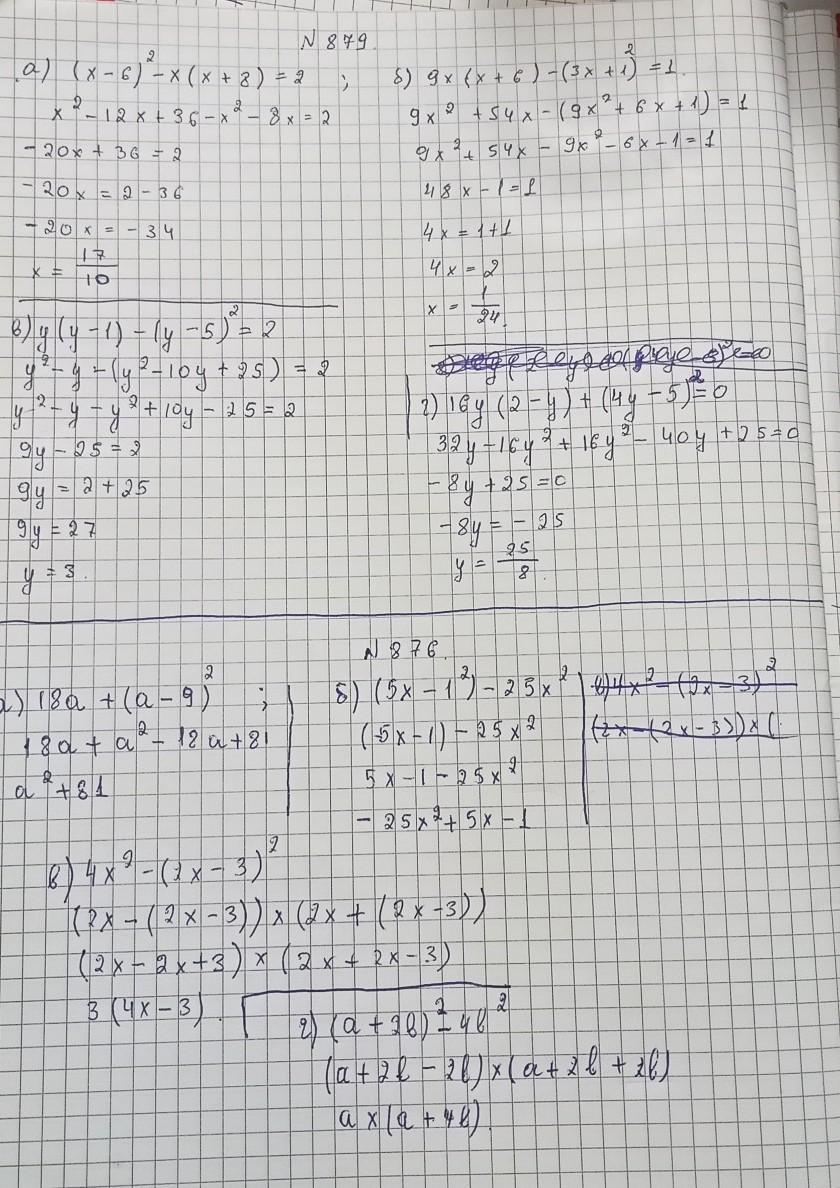 N 879.
а) (x-6)²-x(x+8)=2 ;
x²-12x+36-x²-8x=2
-20x+36=2
-20x=2-36
-20x=-34
x=17/10
б) 9x(x+6)-(3x+1)²=1.
9x²+54x-(9x²+6x+1)=1
9x²+54x-9x²-6x-1=1
48x-1=1
4x=1+1
4x=2
x=1/24.
в) y(y-1)-(y-5)²=2
y²-y-(y²-10y+25)=2
y²-y-y²+10y-25=2
9y-25=2
9y=2+25
9y=27
y=3.
г) 16y(2-y)+(4y-5)²=0
32y-16y²+16y²-40y+25=0
-8y+25=0
-8y=-25
y=25/8.
N 876.
а) 18a+(a-9)² ;
18a+a²-18a+81
a²+81
б) (5x-1²)-25x²
(5x-1)-25x²
5x-1-25x²
-25x²+5x-1
в) 4x²-(2x-3)²
(2x-(2x-3))×(
в) 4x²-(2x-3)²
(2x-(2x-3))×(2x+(2x-3))
(2x-2x+3)×(2x+2x-3)
3(4x-3).
г) (a+2b)²-4b²
(a+2b-2b)×(a+2b+2b)
a×(a+4b)